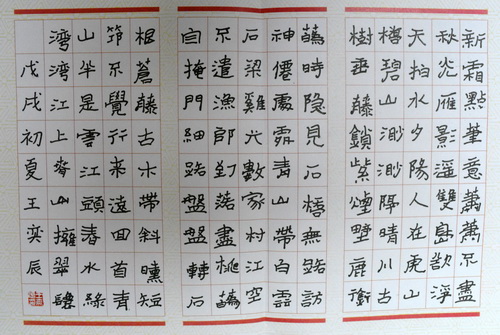 新霜點筆意蕭蕭不盡
秋光雁影遥雙島欲浮
天拍水夕陽人在虎山
樽碧山渺渺降晴川古
樹垂藤鎖紫煙野鹿銜
蘤時隐見石梧無路訪
神僊處處青山帶白雲
石梁雞犬數家村江空
不遣漁郎到落盡桃蘤
自掩門細路盤盤轉石
根蒼藤古木帶斜曛短
筇不覺行来遠回首青
山半是雲江頭春水緑
灣灣江上齊山擁翠鬟
戊戌初夏王奕辰